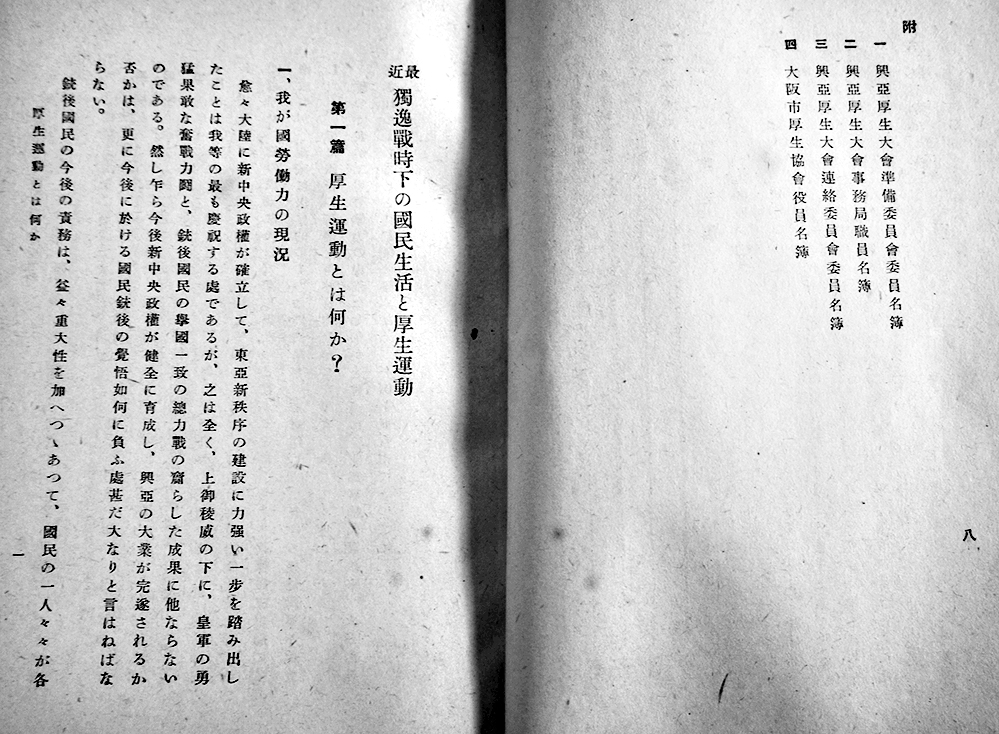 附
一 興亞厚生大會準備委員會委員名簿
二 興亞厚生大會事務局職員名簿
三 興亞厚生大會連絡委員會委員名簿
四 大阪市厚生協會役員名簿
八
最近 獨逸戰時下の國民生活と厚生運動
第一篇 厚生運動とは何か?
一、我が國勞働力の現況
愈々大陸に新中央政權が確立して、東亞新秩序の建設に力強い一步を踏み出し
たことは我等の最も慶祝する處であるが、之は全く、上御稜威の下に、皇軍の勇
猛果敢な奮戰力鬪と、銃後國民の擧國一致の總力戰の齎らした成果に他ならない
のである。然し乍ら今後新中央政權が健全に育成し、興亞の大業が完遂されるか
否かは、更に今後に於ける國民銃後の覺悟如何に負ふ處甚だ大なりと言はねばな
らない。
銃後國民の今後の責務は、益々重大性を加へつゝあつて、國民の一人々々が各
厚生運動とは何か
一